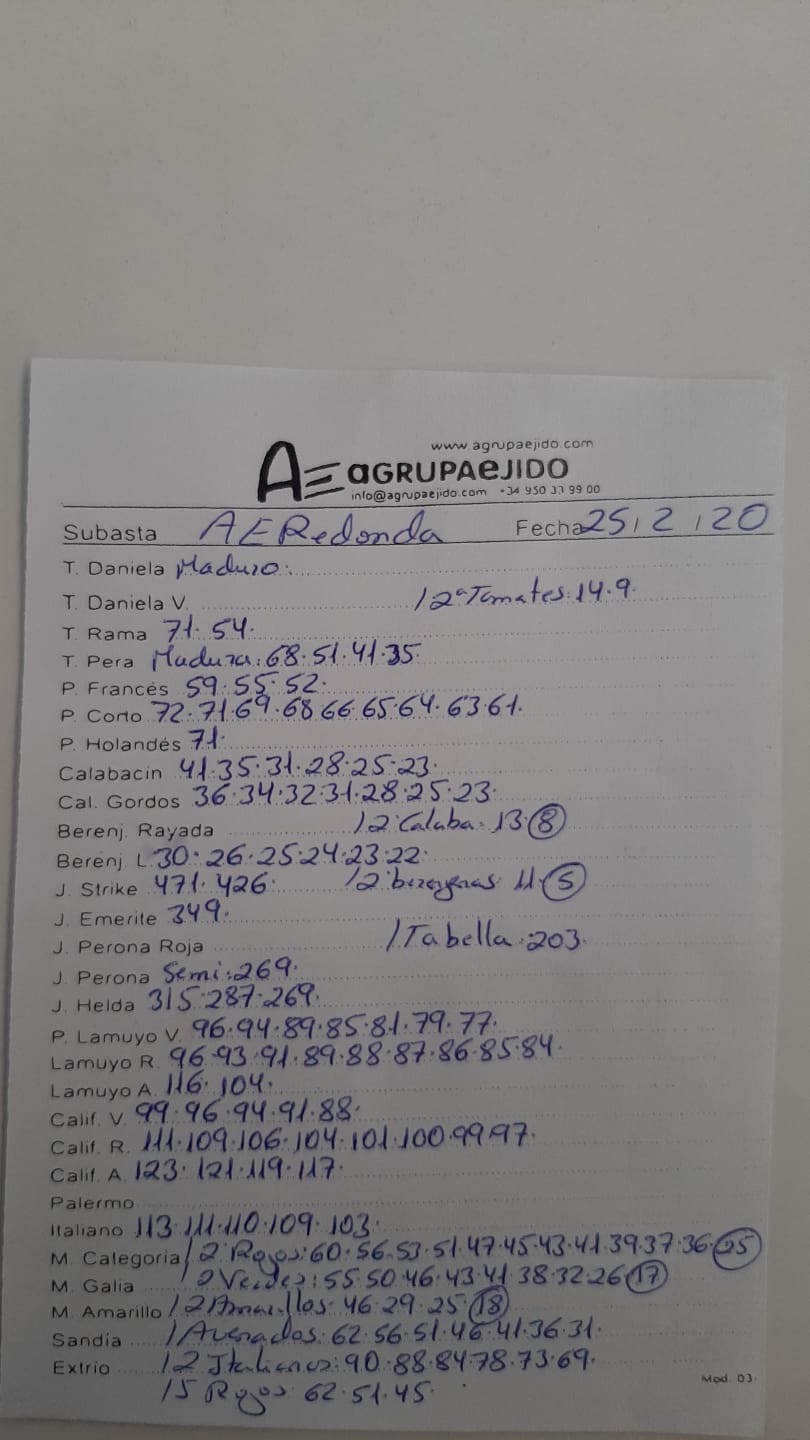 www.agrupaejido.com
AE aGRUPAeJIDO
info@agrupaejido.com +34 950 33 99 00
Subasta AERedonda Fecha 25/2/20
T. Daniela Maduro:
T. Daniela V. /2ª Tomates: 14.9.
T. Rama 71. 54.
T. Pera Madura: 68.51.41.35
P. Francés 59.55.52.
P. Corto 72.71.69.68.66.65.64.63.61.
P. Holandés 71.
Calabacín 41.35.31.28.25.23.
Cal. Gordos 36.34.32.31.28.25.23.
Berenj. Rayada /2ª Calaba. 13.(8)
Berenj. L. 30.26.25.24.23.22.
J. Strike 471.426. /2ª berengenas 11.(5)
J. Emerite 349.
J. Perona Roja /Tabella.203.
J. Perona Semi:269.
J. Helda 315.287.269.
P. Lamuyo V. 96.94.89.85.81.79.77.
Lamuyo R. 96.93.91.89.88.87.86.85.84.
Lamuyo A. 116.104.
Calif. V. 99.96.94.91.88.
Calif. R. 111.109.106.104.101.100.99.97.
Calif. A. 123.121.119.117.
Palermo
Italiano 113.111.110.109.103.
M. Categoria /2ª Rojos:60.56.53.51.47.45.43.41.39.37.36.
M. Galia /2 Verdes:55.50.46.43.41.38.32.26.(17)
M. Amarillo /2 Amarillos:46.29.25.(18)
Sandía /Averados:62.56.51.46.41.36.31.
Extrio /2 Italianos:90.88.84.78.73.69.
/5 Rojos 62.51.45.
Mod. 03.